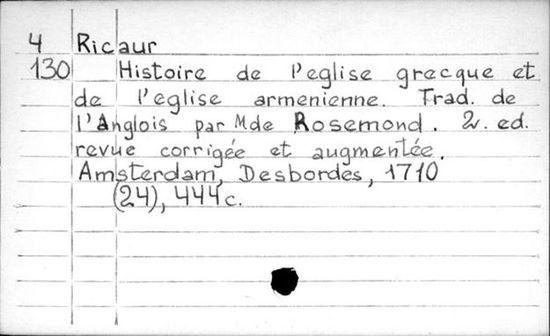 4 Ricaur
130 Histoire de l'eglise grecque et
de l'eglise armenienne. Trad. de
l'Anglois par Mde Rosemond. 2. ed.
revue corrigée et augmentée.
Amsterdam, Desbordes, 1710
(24), 444c.